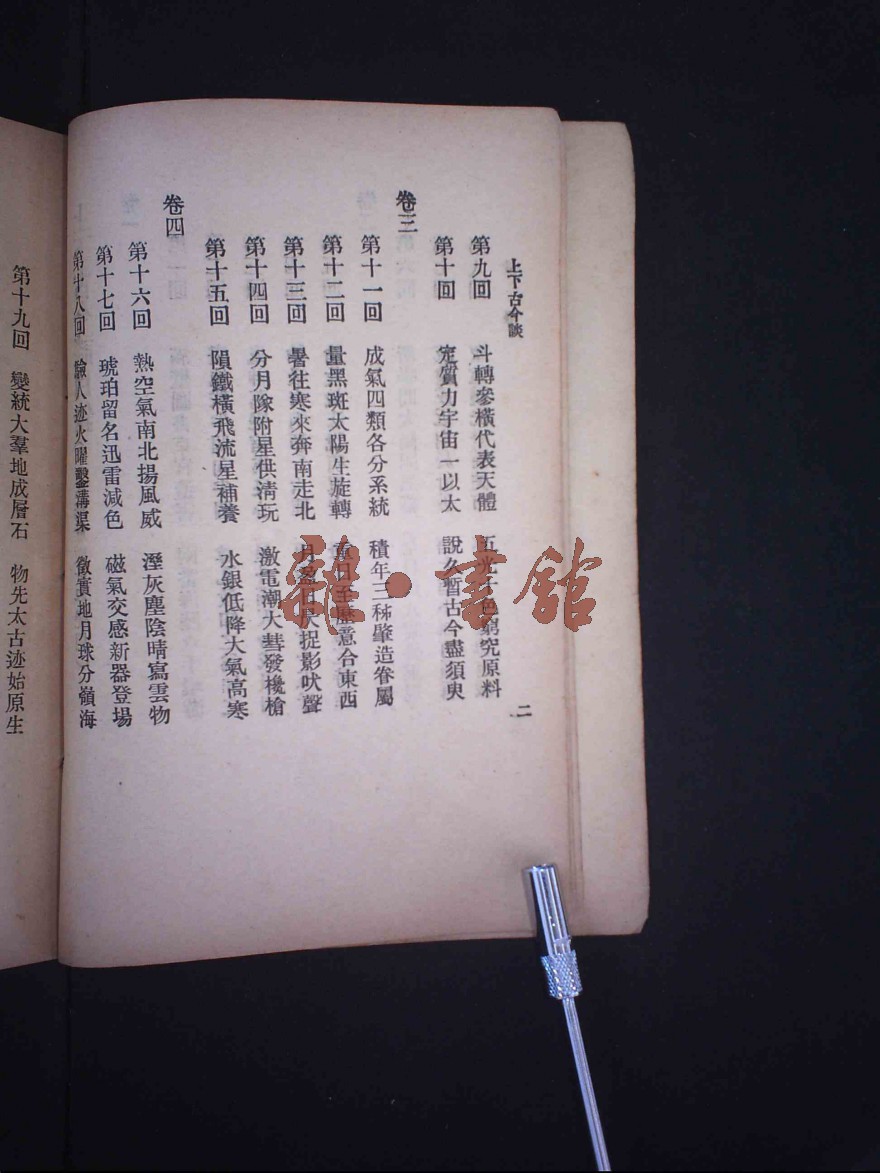 上下古今談
二
第九回 斗轉參橫代表天體 五光十色窮究原料
第十回 定質力宇宙一以太 說久暫古今盡須臾
卷三
第十一回 成氣四類各分系統 積年三秭肇造眷屬
第十二回 量黑斑太陽生旋轉 日至歷意合東西
第十三回 暑往寒來奔南走北 月盈日 捉影吠聲
第十四回 分月隊附星供清玩 激電潮大彗發欃槍
第十五回 隕鐵橫飛流星補養 水銀低降大氣高寒
卷四
第十六回 熱空氣南北揚風威 溼灰塵陰晴寫雲物
第十七回 琥珀留名迅雷減色 磁氣交感新器登場
第十八回 驗人迹火曜鑿溝渠 徵實地月球分嶺海
第十九回 變統大羣地成層石 物先太古迹始原生
龍·書館